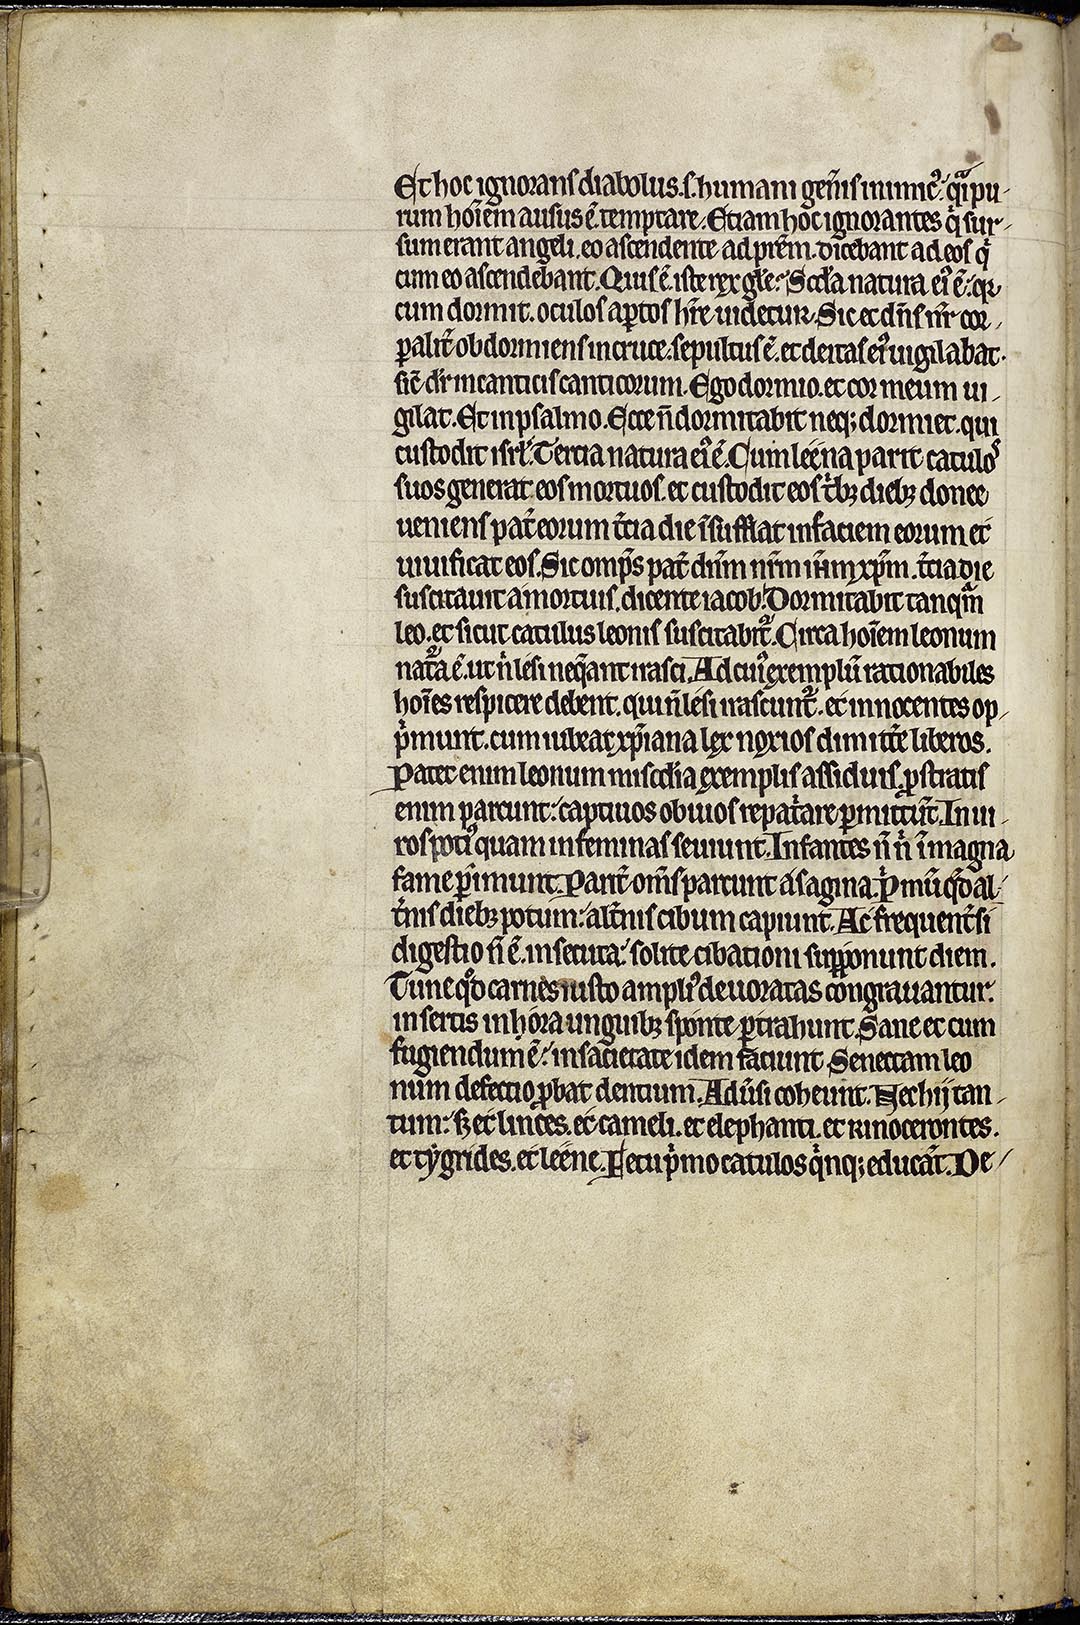 Et hoc ignorans diabolus .s. humani gen̄is inimicꝰ: q̄i pu-
rum hoīem ausus ē. temptare. Etiam hoc ignorantes qͥ sur-
sum erant angeli. eo ascendente ad pr̄em. dicebant ad eos qͥ
cum eo ascendebant. Quis ē. iste rex gl̄e: Scđa natura eiꝰ ē: qr̄
cum dormit. oculos aptos hr̄e uidetur. Sic et dn̄s nr̄ cor-
ꝑalit̄ obdormiens in cruce: sepultus ē. et deitas eiꝰ uigilabat.
sic̄ dr̄ in canticis canticorum. Ego dormio. et cor meum ui-
gilat. Et in psalmo. Ecce n̄ dormitabit neqꝫ dormiet. qui
custodit isrl̄. Tercia natura eiꝰ ē. Cum leena parit catulos
suos generat eos mortuos. et custodit eos tͥbꝫ diebꝫ donec
ueniens pat̄ eorum t̄cia die īsufflat in faciem eorum et
uiuificat eos. Sic omp̄s pat̄ dn̄m nr̄m ihm̄ xp̄m. t̄cia die
suscitauit a mortuis. dicente iacob. Dormitabit tanqͣm
leo. et sicut catulus leonis suscitabit᷑. Circa hoīem leonum
nat᷑a ē. ut nͥ lesi neqͣant irasci. Ad cuiꝰ exemplū rationabiles
hoīes respicere debent. qui n̄ lesi irascunt᷑. et innocentes op-
pͥmunt. cum iubeat xp̄iana lex noxios dimitt̄e liberos.
Patet enim leonum misc̄dia exemplis assiduis. ꝓstratis
enim parcunt: captiuos obuios repatͥare ꝑmittūt. In ui-
ros potiꝰ quam in feminas seuiunt. Infantes n̄ nͥ ī magna
fame ꝑimunt. Parit̄ om̄s parcunt a sagina. Pͥmū qđ al-
t̄nis diebꝫ potum: alt̄nis cibum capiunt. Ac frequent̄ si
digestio n̄ ē. insecuta: solite cibationi suꝑponunt diem.
Tunc qđ carnes iusto ampliꝰ deuoratas cum grauantur:
insertis in hora unguibꝫ sponte ꝓtrahunt. Sane et cum
fugiendum ē: in sacietate idem faciunt. Senectam leo
num defectio ꝓbat dentium. Adūsi coheunt. Nec hij tan-
tum: sꝫ et linces. et cameli. et elephanti. et rinocerontes.
et tygrides. et leene. Fetu pͥmo catulos qͥnqꝫ educāt. De-